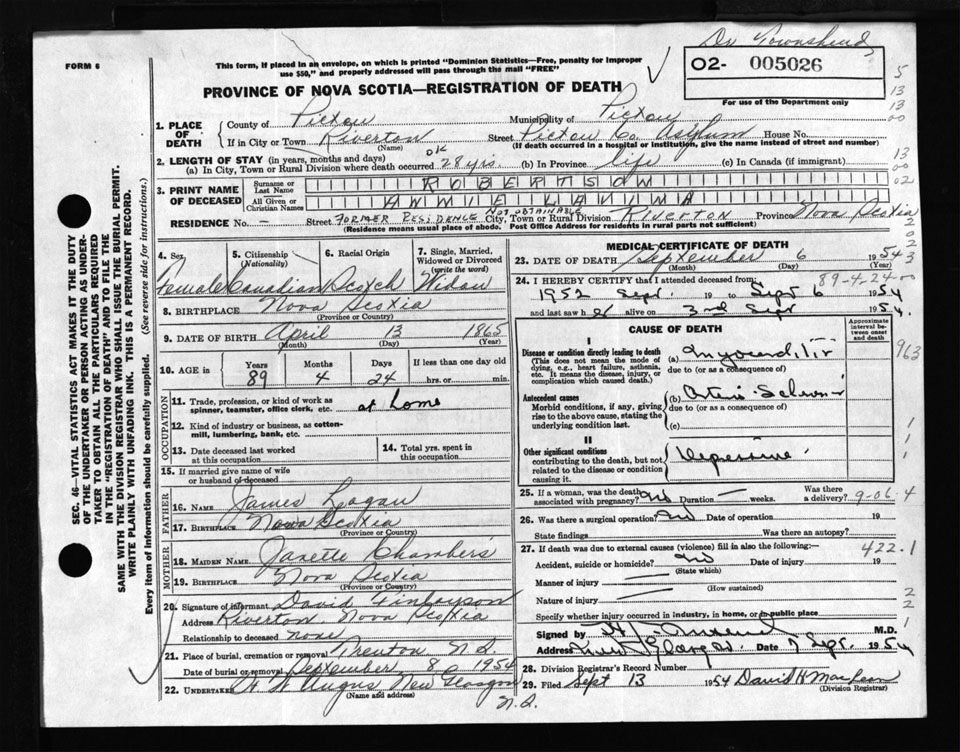 Dr Townshend
FORM 6
This form, if placed in an envelope, on which is printed "Dominion Statistics—Free, penalty for improper
use $50," and properly addressed will pass through the mail "FREE"
02- 005026
For use of the Department only
PROVINCE OF NOVA SCOTIA—REGISTRATION OF DEATH
1. PLACE OF DEATH County of Pictou Municipality of Pictou
If in City or Town Riverton Street Pictou Co. Asylum House No.
(Name) (If death occurred in a hospital or institution, give the name instead of street and number)
2. LENGTH OF STAY (in years, months and days) OK
(a) In City, Town or Rural Division where death occurred 28 yrs. (b) In Province life (c) In Canada (if immigrant)
3. PRINT NAME OF DECEASED Surname or Last Name ROBERTSON
All Given or Christian Names ANNIE LANIMA
NOT OBTAINABLE
RESIDENCE No. — Street FORMER RESIDENCE City, Town or Rural Division Riverton Province Nova Scotia
(Residence means usual place of abode. Post Office Address for residents in rural parts not sufficient)
4. Sex Female
5. Citizenship (Nationality) Canadian
6. Racial Origin Scotch
7. Single, Married, Widowed or Divorced (write the word) Widow
8. BIRTHPLACE Nova Scotia
(Province or Country)
9. DATE OF BIRTH April 13 1865
(Month) (Day) (Year)
10. AGE in Years Months Days If less than one day old
89 4 24 hrs. or min.
OCCUPATION
11. Trade, profession, or kind of work as
spinner, teamster, office clerk, etc. at home
12. Kind of industry or business, as cotton-
mill, lumbering, bank, etc.
13. Date deceased last worked
at this occupation
14. Total yrs. spent in
this occupation
15. If married give name of wife
or husband of deceased
FATHER
16. NAME James Logan
17. BIRTHPLACE Nova Scotia
(Province or Country)
MOTHER
18. MAIDEN NAME Janette Chambers
19. BIRTHPLACE Nova Scotia
(Province or Country)
20. Signature of informant David Finlayson
Address Riverton. Nova Scotia
Relationship to deceased none
21. Place of burial, cremation or removal Trenton N.S.
Date of burial or removal September 8 1954
22. UNDERTAKER H W Angus New Glasgow
(Name and address) N.S.
MEDICAL CERTIFICATE OF DEATH
23. DATE OF DEATH September 6 1954
(Month) (Day) (Year)
89-4-24
24. I HEREBY CERTIFY that I attended deceased from:
1952 Sept. 19 to Sept 6 1954
and last saw her alive on 3rd Sept 1954.
CAUSE OF DEATH
Approximate interval between onset and death
I
Disease or condition directly leading to death
(This does not mean the mode of dying, e.g., heart failure, asthenia, etc. It means the disease, injury, or complication which caused death.)
(a) Myocarditis
due to (or as a consequence of)
Antecedent causes
Morbid conditions, if any, giving rise to the above cause, stating the underlying condition last.
(b)
due to (or as a consequence of)
(c)
II
Other significant conditions
contributing to the death, but not related to the disease or condition causing it.
25. If a woman, was the death associated with pregnancy? no Duration — weeks. Was there a delivery?
9-06.4
26. Was there a surgical operation? no Date of operation 19
State findings Was there an autopsy?
27. If death was due to external causes (violence) fill in also the following:—
422.1
Accident, suicide or homicide? no Date of injury 19
(State which)
Manner of injury
(How sustained)
Nature of injury
Specify whether injury occurred in industry, in home, or in public place
Signed by M.D.
Address New Glasgow. Date 7 Sept. 1954
28. Division Registrar's Record Number
29. Filed Sept 13 1954 David H MacLean
(Division Registrar)
SEC. 46—VITAL STATISTICS ACT MAKES IT THE DUTY
OF THE UNDERTAKER OR PERSON ACTING AS UNDER-
TAKER TO OBTAIN ALL THE PARTICULARS REQUIRED
IN THE "REGISTRATION OF DEATH" AND TO FILE THE
SAME WITH THE DIVISION REGISTRAR WHO SHALL ISSUE THE BURIAL PERMIT.
WRITE PLAINLY WITH UNFADING INK. THIS IS A PERMANENT RECORD.
Every item of information should be carefully supplied. (See reverse side for instructions.)
5
13
13
00
13
00
02
963